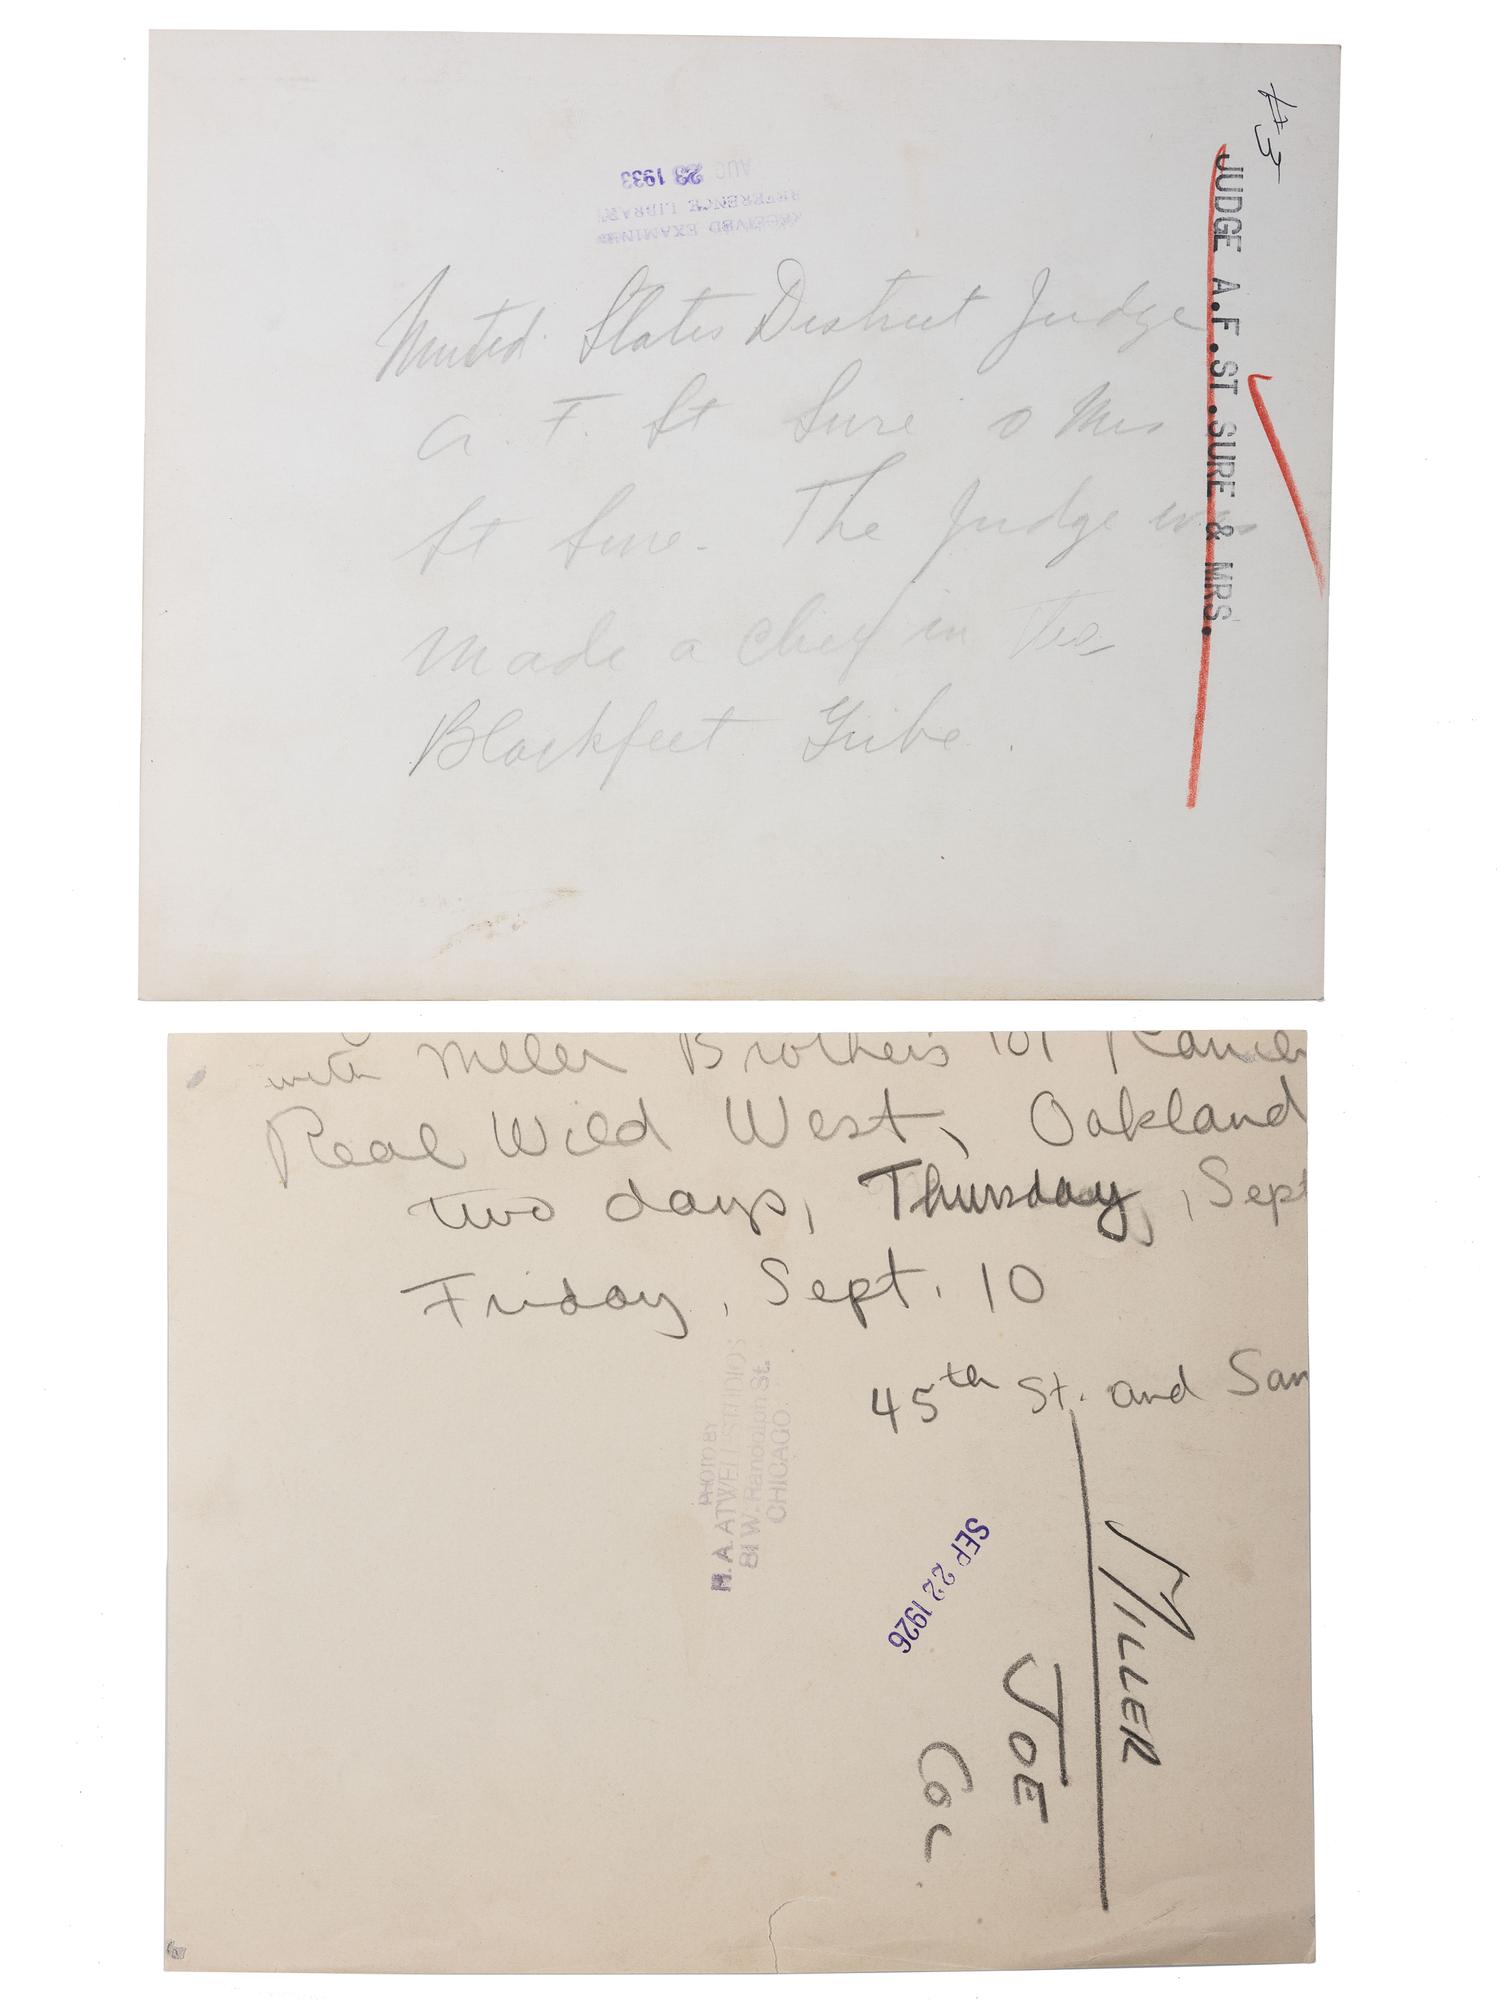 #3
JUDGE A.F.ST.SURE & MRS.
RECEIVED EXAMINER
REFERENCE LIBRARY
AUG 23 1933
United States District Judge
A. F. St Sure & Mrs
St Sure. The Judge was
made a chief in the
Blackfeet Tribe.
with Miller Brothers 101 Ranch
Real Wild West, Oakland
two days, Thursday, Sept
Friday, Sept. 10
45th St. and San
PHOTO BY
H.A. ATWELL STUDIOS
81 W. Randolph St.
CHICAGO.
SEP 22 1926
MILLER
JOE
Col.